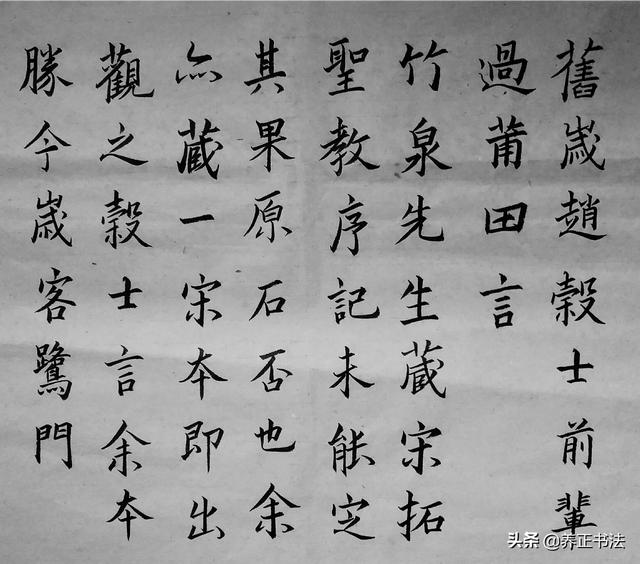 舊歲趙穀士前輩
過莆田言
竹泉先生藏宋拓
聖教序記未能定
其果原石否也余
亦藏一宋本即出
觀之穀士言余本
勝今歲客鷺門
头条 @养正书法